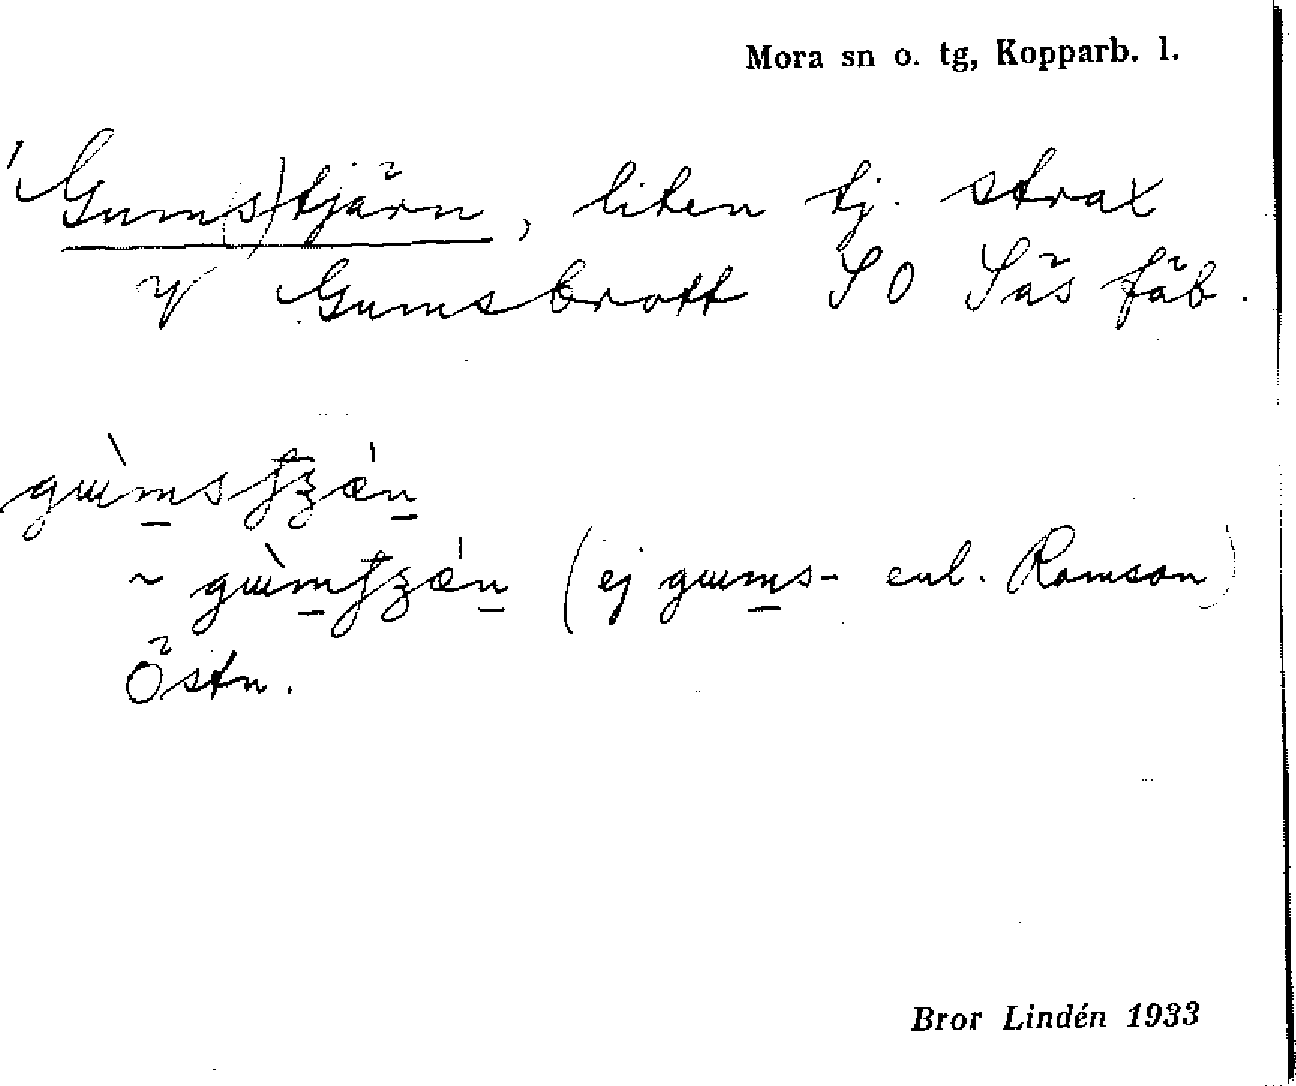 Mora sn o. tg, Kopparb. l.
Gum(s)tjärn, liten tj. strax
v Gumsbrott SO Säs fäb.
(ej gums- enl. Romson)
Östn.
Bror Lindén 1933